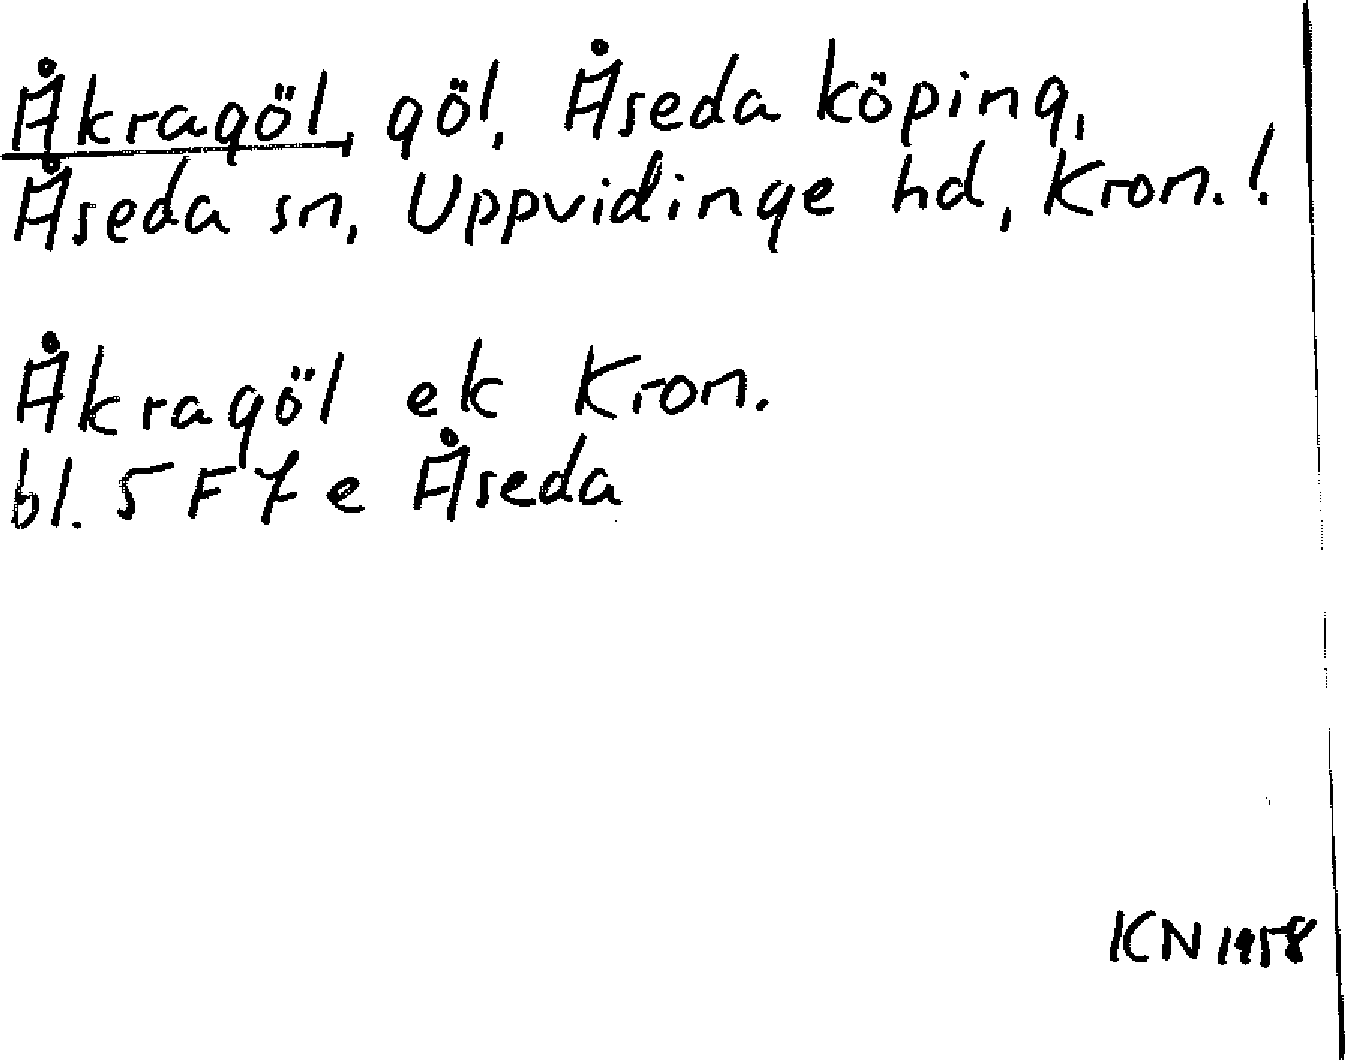 Åkragöl, göl, Åseda köping,
Åseda sn, Uppvidinge hd, Kron.!
Åkragöl ek Kron.
bl. 5 F 7 e Åseda
KN 1958